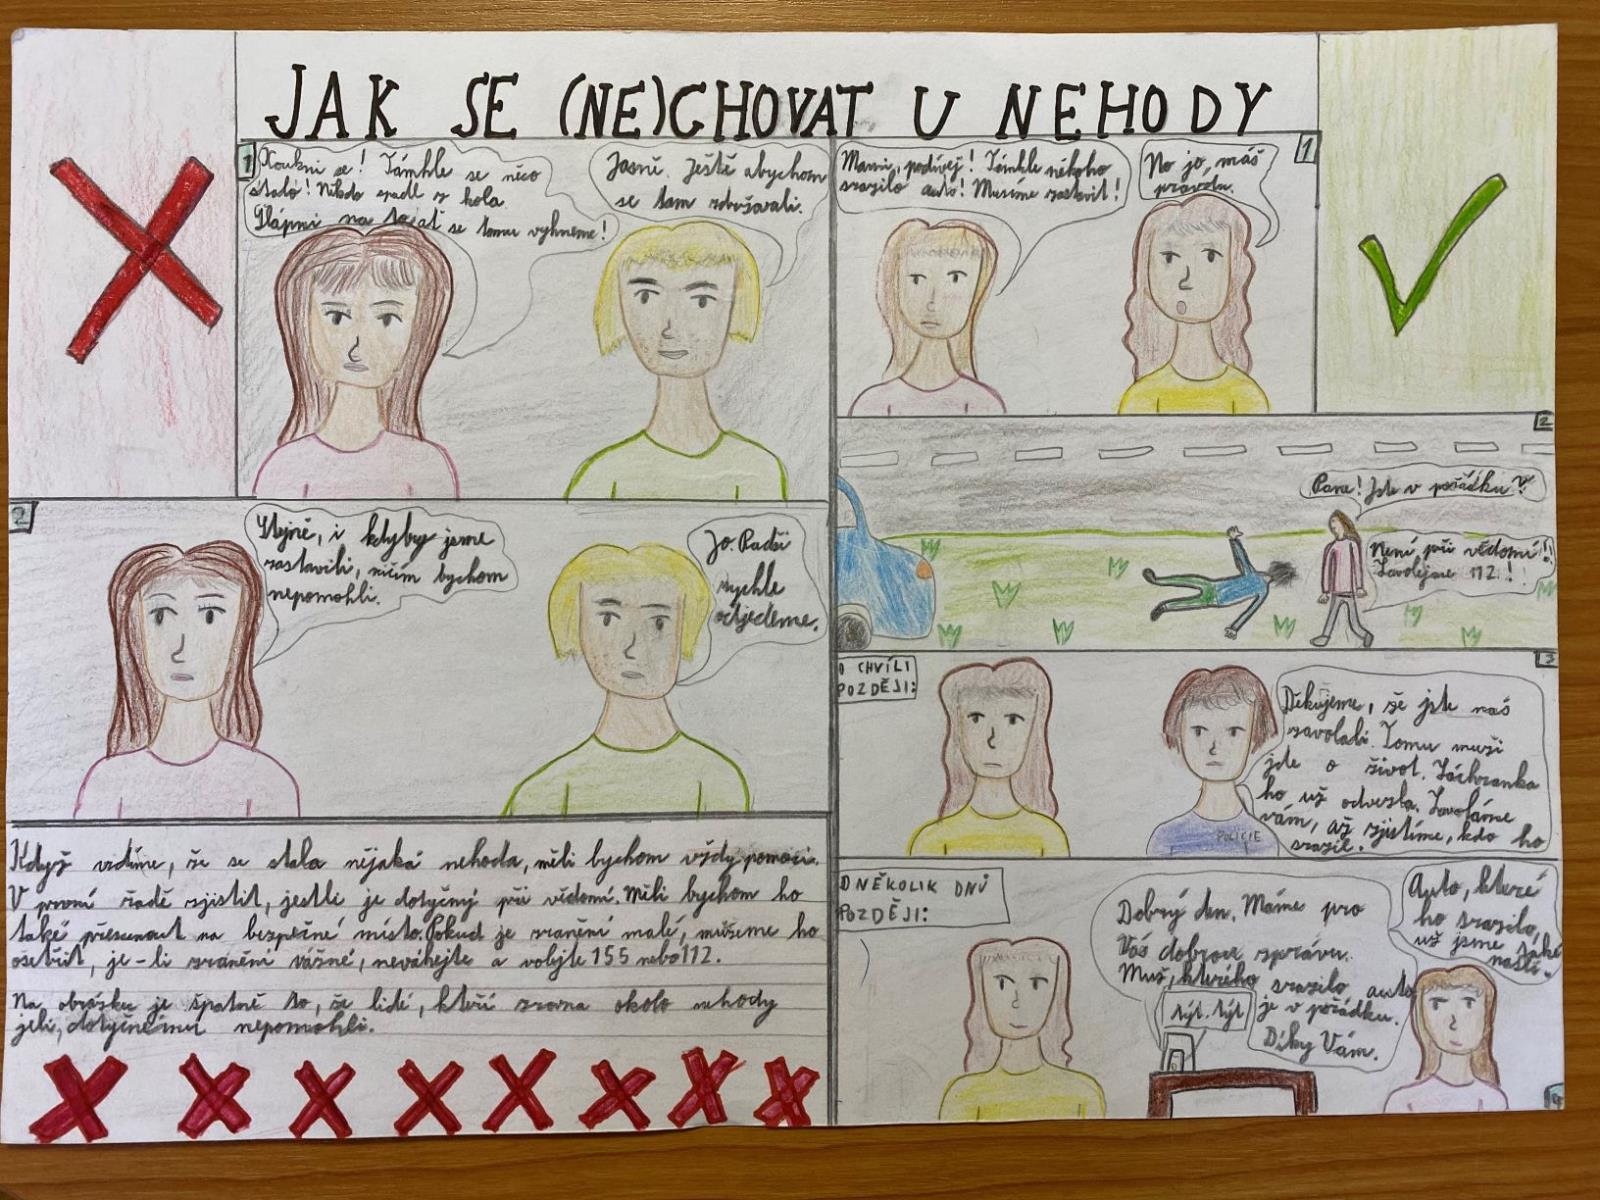 JAK SE (NE)CHOVAT U NEHODY
1
Koukni se! Támhle se něco
stalo! Někdo spadl z kola.
Šlápni na to, ať se tomu vyhneme!
Jasně. Ještě abychom
se tam zdržovali.
2
Stejně, i kdyby jsme
zastavili, ničím bychom
nepomohli.
Jo. Radši
rychle
odjedeme.
Když vidíme, že se stala nějaká nehoda, měli bychom vždy pomoci.
V první řadě zjistit, jestli je dotyčný při vědomí. Měli bychom ho
také přesunout na bezpečné místo. Pokud je zranění malé, můžeme ho
ošetřit, je-li zranění vážné, neváhejte a volejte 155 nebo 112.
Na obrázku je špatně to, že lidé, kteří zrovna okolo nehody
jeli, dotyčnému nepomohli.
1
Mami, podívej! Támhle někoho
srazilo auto! Musíme zastavit!
No jo, máš
pravdu.
2
Pane! Jste v pořádku?
Není při vědomí!
Zavolejme 112!
3
O CHVÍLI
POZDĚJI:
Děkujeme, že jste nás
zavolali. Tomu muži
jde o život. Záchranka
ho už odvezla. Zavoláme
vám, až zjistíme, kdo ho
srazil.
POLICIE
O NĚKOLIK DNÍ
POZDĚJI:
Dobrý den. Máme pro
Vás dobrou zprávu.
Muž, kterého srazilo auto
je v pořádku.
Díky Vám.
týt. týt
Auto, které
ho srazilo,
už jsme také
našli.